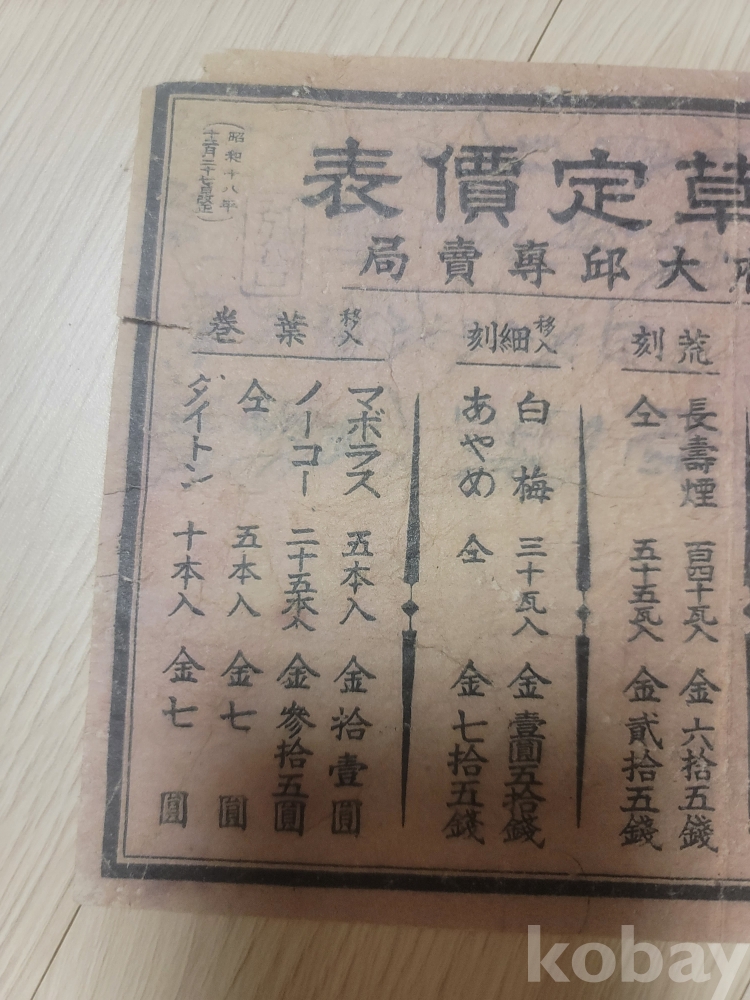 草定價表
大邱專賣局
(昭和十八年
十二月二十七日改正)
荒刻
長壽煙 百四十瓦入 金六拾五錢
仝 五十五瓦入 金貳拾五錢
移入細刻
白梅 三十瓦入 金壹圓五拾錢
あやめ 仝 金七拾五錢
移入葉巻
マボラス 五本入 金拾壹圓
ノーコー 二十五本入 金參拾五圓
仝 五本入 金七圓
ダイトン 十本入 金七圓
kobay